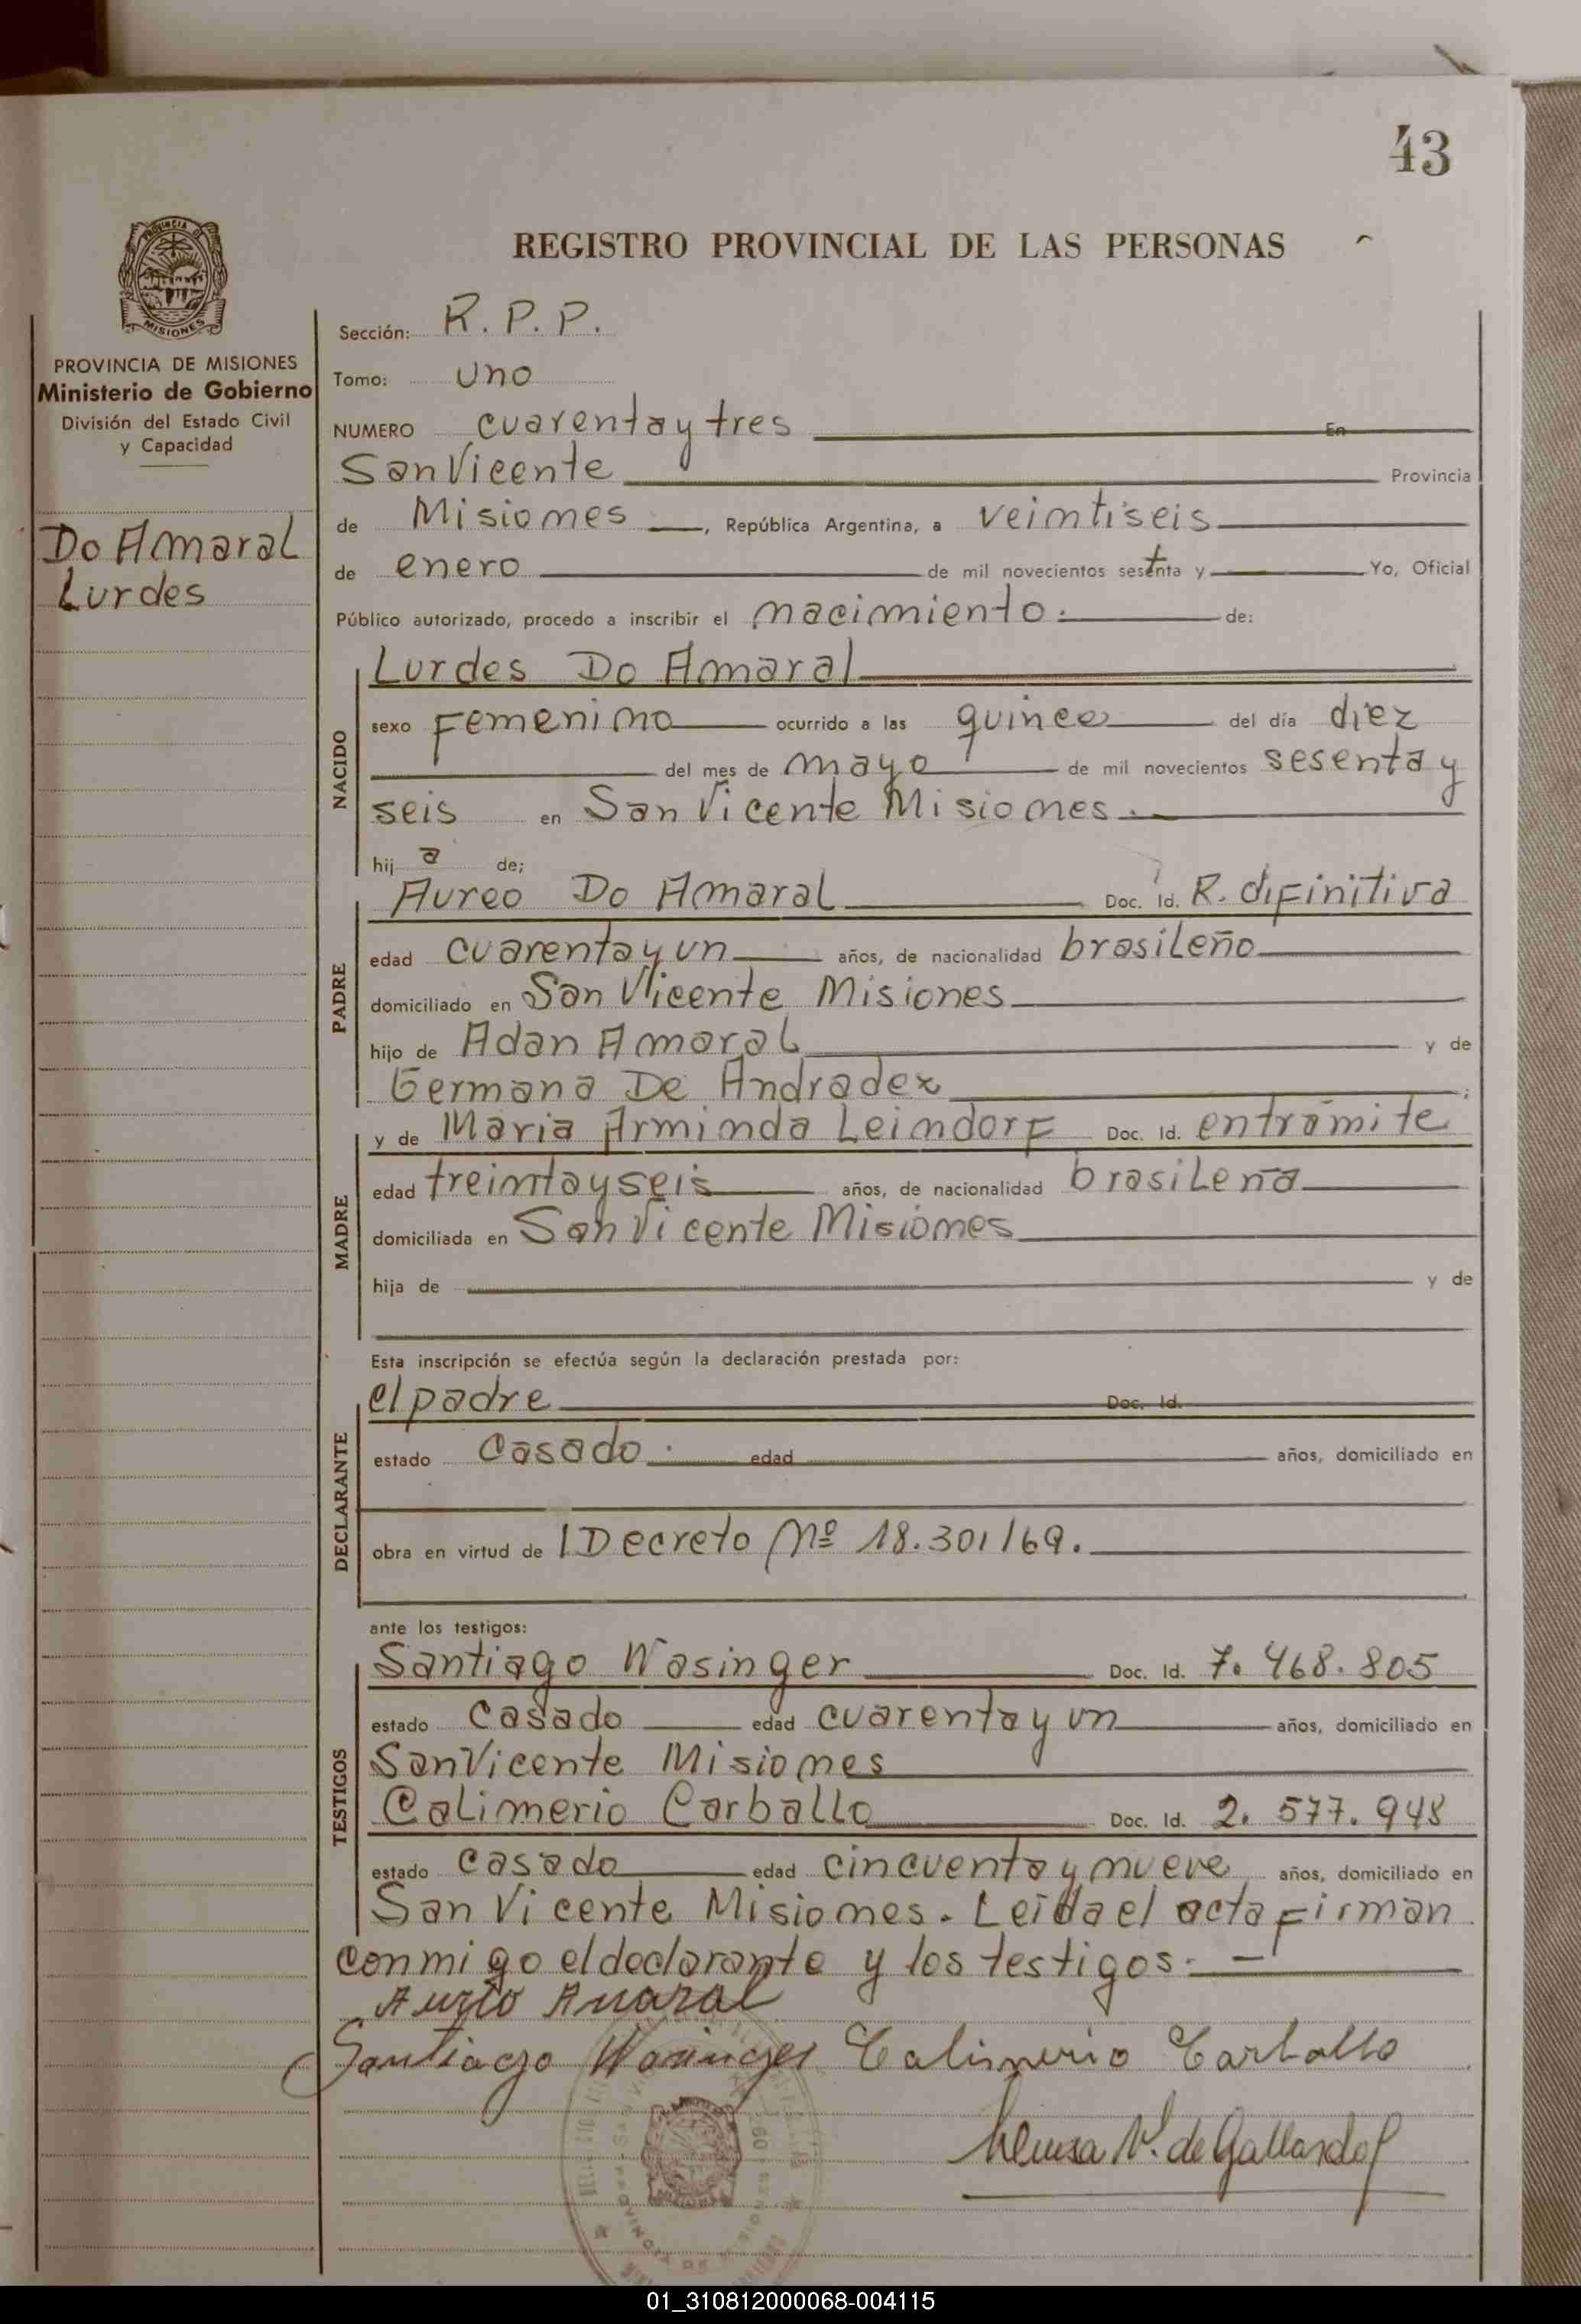 43
REGISTRO PROVINCIAL DE LAS PERSONAS
PROVINCIA DE MISIONES
Ministerio de Gobierno
División del Estado Civil
y Capacidad
Do Amaral
Lurdes
Sección: R. P. P.
Tomo: uno
NUMERO cuarenta y tres En
San Vicente Provincia
de Misiones, República Argentina, a veintiseis
de enero de mil novecientos setenta y Yo, Oficial
Público autorizado, procedo a inscribir el nacimiento. de:
NACIDO
Lurdes Do Amaral
sexo Femenino ocurrido a las quince del día diez
del mes de mayo de mil novecientos sesenta y
seis en San Vicente Misiones.
hij a de;
PADRE
Aureo Do Amaral Doc. Id. R. difinitiva
edad cuarenta y un años, de nacionalidad brasileño
domiciliado en San Vicente Misiones
hijo de Adan Amaral y de
Germana De Andradex;
MADRE
y de Maria Arminda Leindorf Doc. Id. entrámite
edad treinta y seis años, de nacionalidad brasileña
domiciliada en San Vicente Misiones
hija de y de
Esta inscripción se efectúa según la declaración prestada por:
DECLARANTE
el padre Doc. Id.
estado Casado. edad años, domiciliado en
obra en virtud de l Decreto Nº 18.301/69.
ante los testigos:
TESTIGOS
Santiago Wasinger Doc. Id. 7.468.805
estado casado edad cuarenta y un años, domiciliado en
San Vicente Misiones
Calimerio Carballo Doc. Id. 2.577.948
estado casado edad cincuenta y nueve años, domiciliado en
San Vicente Misiones. Leida el acta firman
conmigo el declarante y los testigos. —
Aurio Amaral
Santiago Wasinger Calimerio Carballo
V. de Gallardo
01_310812000068-004115